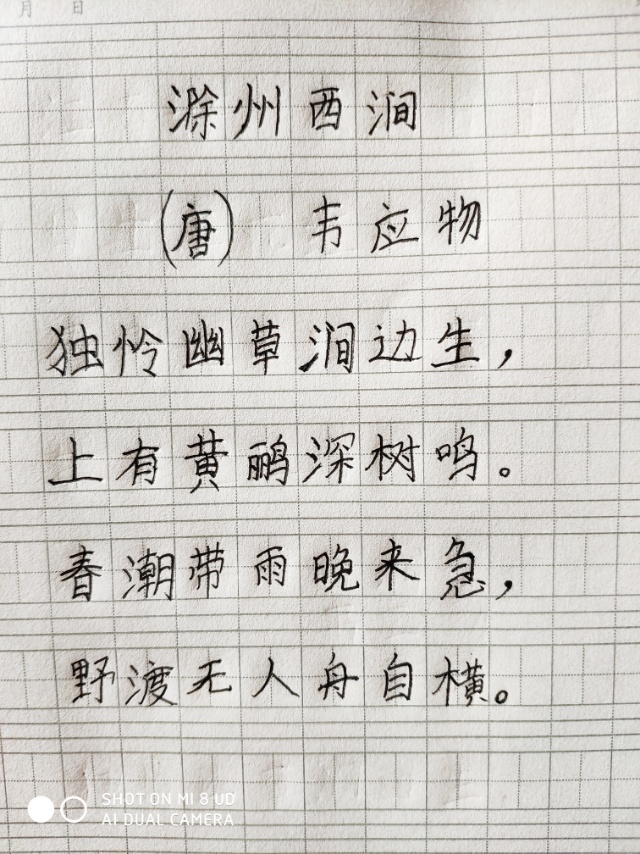 月 日
滁州西涧
(唐) 韦应物
独怜幽草涧边生，
上有黄鹂深树鸣。
春潮带雨晚来急，
野渡无人舟自横。
SHOT ON MI 8 UD
AI DUAL CAMERA